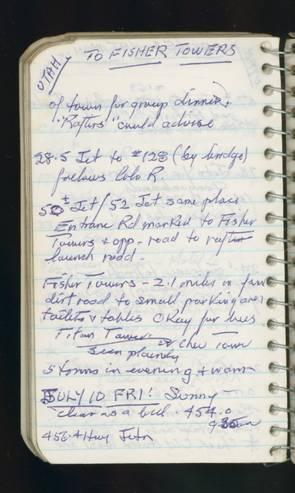 UTAH
TO FISHER TOWERS
of town for group dinner,
"Rafters" could advise
28.5 Jct to #128 (by bridge)
follows Colo R.
Jct / 52 Jct same place
Entrance Rd marked to Fisher
Towers & opp. road to rafter
launch road.
Fisher Towers - 2.1 miles in fair
dirt road to small parking area
toilets & tables Okay for
Titan Tower
seen plainly
Storms in evening & warm
JULY 10 FRI: Sunny
clear as a bell. 454.0
456.4 Hwy Jctn